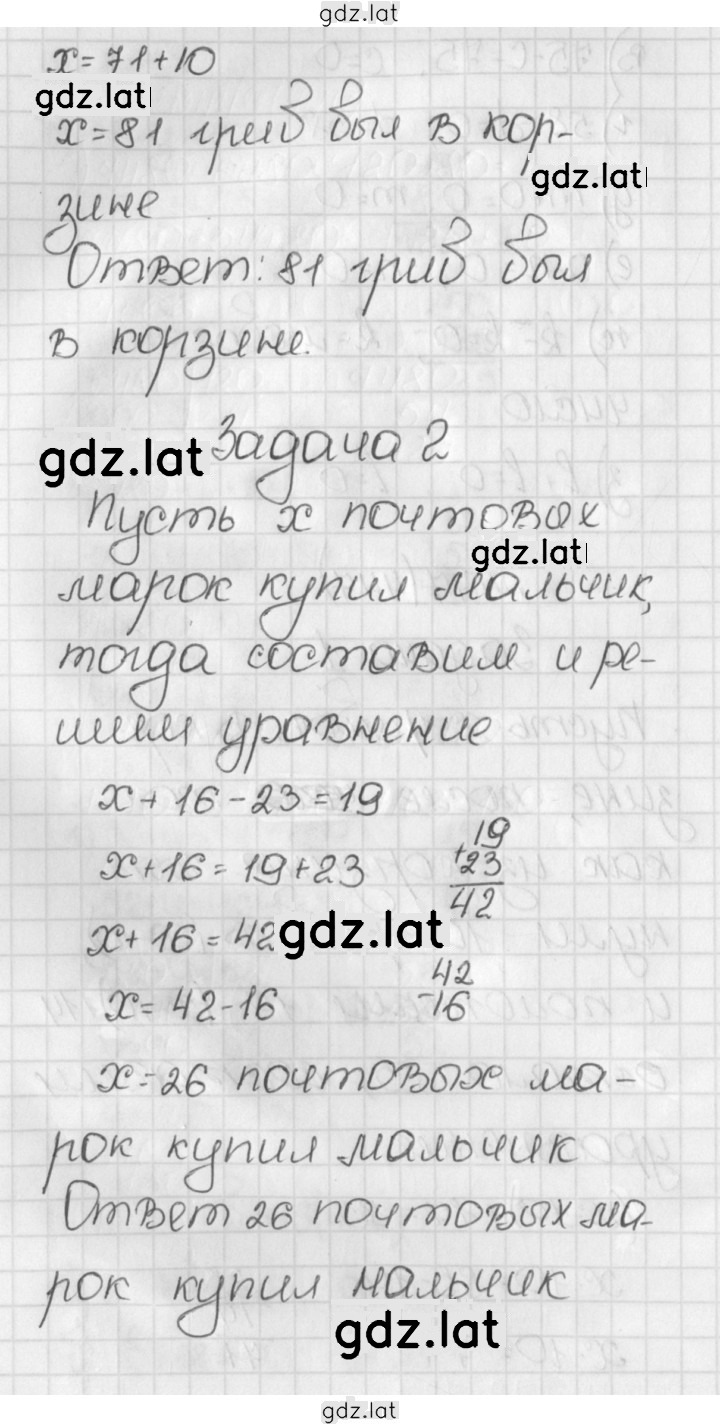 gdz.lat
x=71+10
gdz.lat
x=81 гриб был в кор-
gdz.lat
зине
Ответ: 81 гриб был
в корзине.
gdz.lat Задача 2
Пусть x почтовах
gdz.lat
марок купил мальчик,
тогда составим и ре-
шим уравнение
x+16-23=19
x+16=19+23
19
+23
42
x+16=42
gdz.lat
x=42-16
42
-16
x=26 почтовых ма-
рок купил мальчик
Ответ 26 почтовых ма-
рок купил мальчик
gdz.lat
gdz.lat